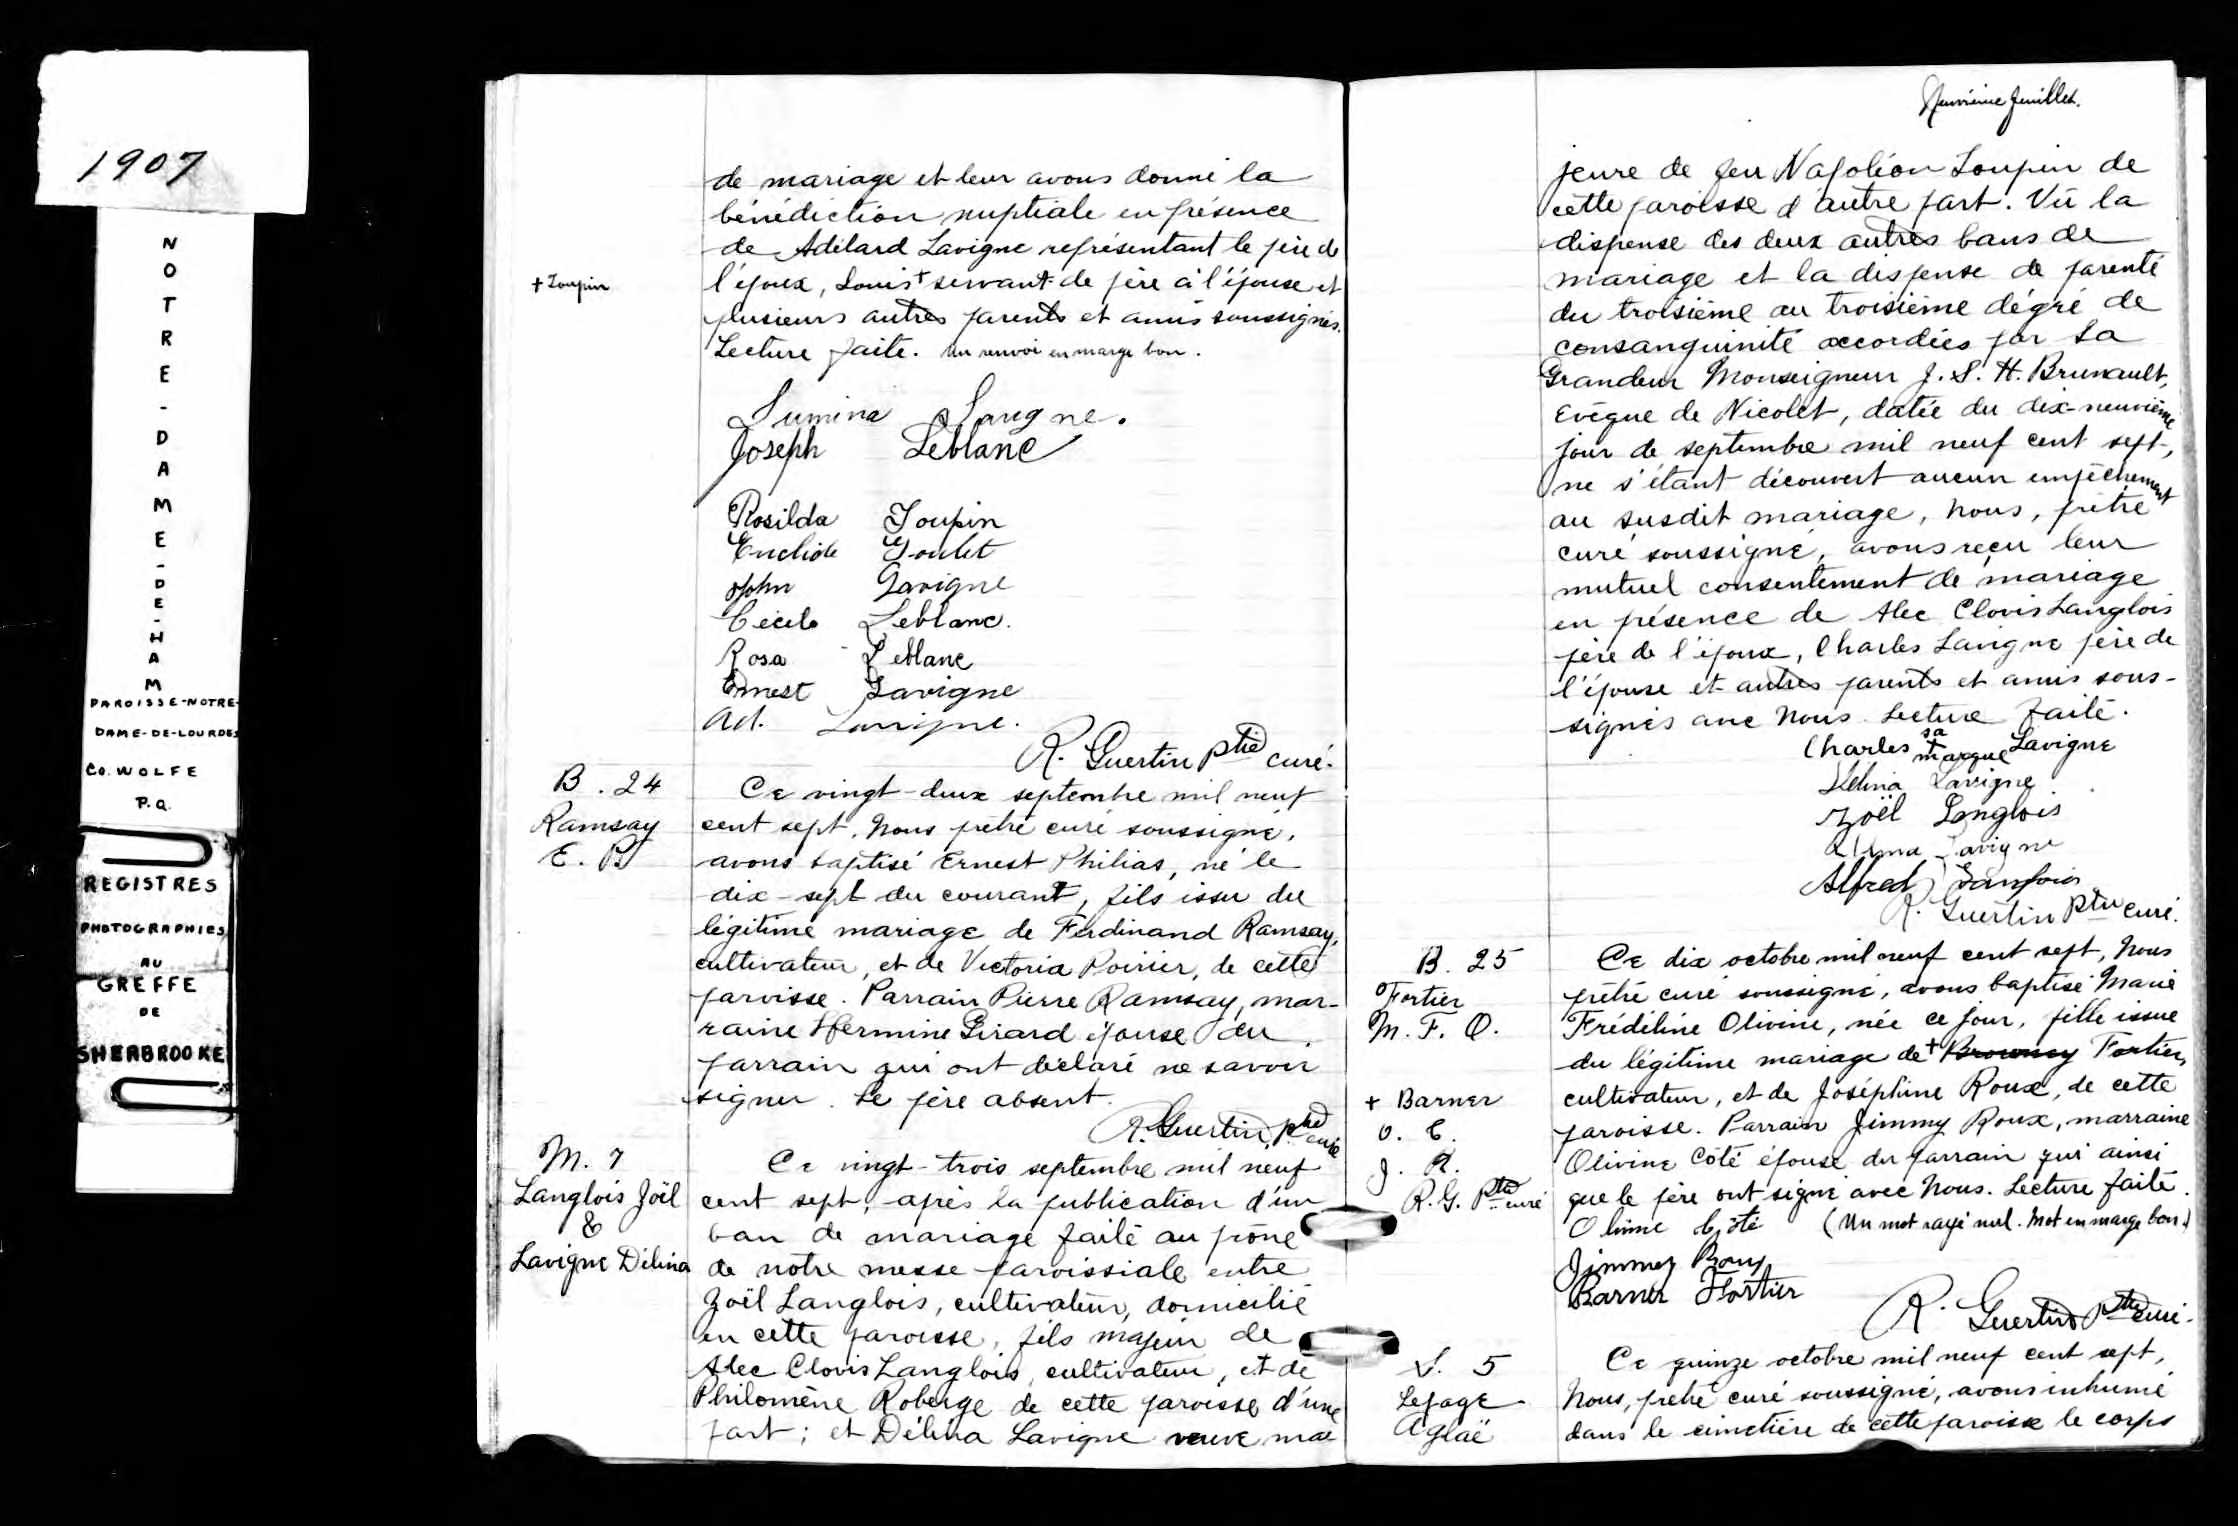 1907
NOTRE-DAME-DE-HAM
PAROISSE-NOTRE-
DAME-DE-LOURDES
CO. WOLFE
P.Q.
REGISTRES
PHOTOGRAPHIES
AU
GREFFE
DE
SHERBROOKE
de mariage et leur avons donné la
bénédiction nuptiale en présence
de Adélard Lavigne représentant le père de
+ Toupin
l'époux, Louis + servant de père à l'épouse et
plusieurs autres parents et amis soussignés.
Lecture faite. Un renvoi en marge bon.
Lumina Lavigne.
Joseph Leblanc
Rosilda Toupin
Euclide Goulet
John Lavigne
Cécile Leblanc.
Rosa Leblanc
Ernest Lavigne
Ad. Lavigne.
R. Guertin Ptre curé.
B. 24
Ramsay
E. P.
Ce vingt-deux septembre mil neuf
cent sept, Nous prêtre curé soussigné,
avons baptisé Ernest Philias, né le
dix-sept du courant, fils issu du
légitime mariage de Ferdinand Ramsay,
cultivateur, et de Victoria Poirier, de cette
paroisse. Parrain Pierre Ramsay, mar-
raine Hermine Girard épouse du
parrain qui ont déclaré ne savoir
signer. Le père absent.
R. Guertin, ptre curé
M. 7
Langlois Joël
&
Lavigne Délina
Ce vingt-trois septembre mil neuf
cent sept, après la publication d'un
ban de mariage faite au prône
de notre messe paroissiale entre
Joël Langlois, cultivateur, domicilié
en cette paroisse, fils majeur de
Alec Clovis Langlois, cultivateur, et de
Philomène Roberge de cette paroisse d'une
part; et Délina Lavigne veuve ma
Neuvième feuillet.
jeure de feu Napoléon Toupin de
cette paroisse d'autre part. Vû la
dispense des deux autres bans de
mariage et la dispense de parenté
du troisième au troisième dégré de
consanguinité accordées par Sa
Grandeur Monseigneur J. S. H. Brunault,
Evêque de Nicolet, datée du dix-neuvième
jour de septembre mil neuf cent sept,
ne s'étant découvert aucun empêchement
au susdit mariage, Nous, prêtre
curé soussigné, avons reçu leur
mutuel consentement de mariage
en présence de Alec Clovis Langlois
père de l'époux, Charles Lavigne père de
l'épouse et autres parents et amis sous-
signés avec Nous. Lecture faite.
Charles sa + marque Lavigne
Délina Lavigne
Joël Langlois
Alma Lavigne
Alfred Langlois
R. Guertin Ptre curé.
B. 25
Fortier
M. F. O.
Ce dix octobre mil neuf cent sept, Nous
prêtre curé soussigné, avons baptisé Marie
Frédéline Olivine, née ce jour, fille issue
du légitime mariage de + Browney Fortier,
cultivateur, et de Joséphine Roux, de cette
paroisse. Parrain Jimmy Roux, marraine
Olivine Côté épouse du parrain qui ainsi
que le père ont signé avec Nous. Lecture faite.
+ Barner
O. C.
J. R.
R. G. Ptre curé
Olivine Côté (Un mot rayé nul. Mot en marge bon.)
Jimmey Roux
Barner Fortier
R. Guertin Ptre curé.
S. 5
Lepage
Aglaë
Ce quinze octobre mil neuf cent sept,
Nous, prêtre curé soussigné, avons inhumé
dans le cimetière de cette paroisse le corps